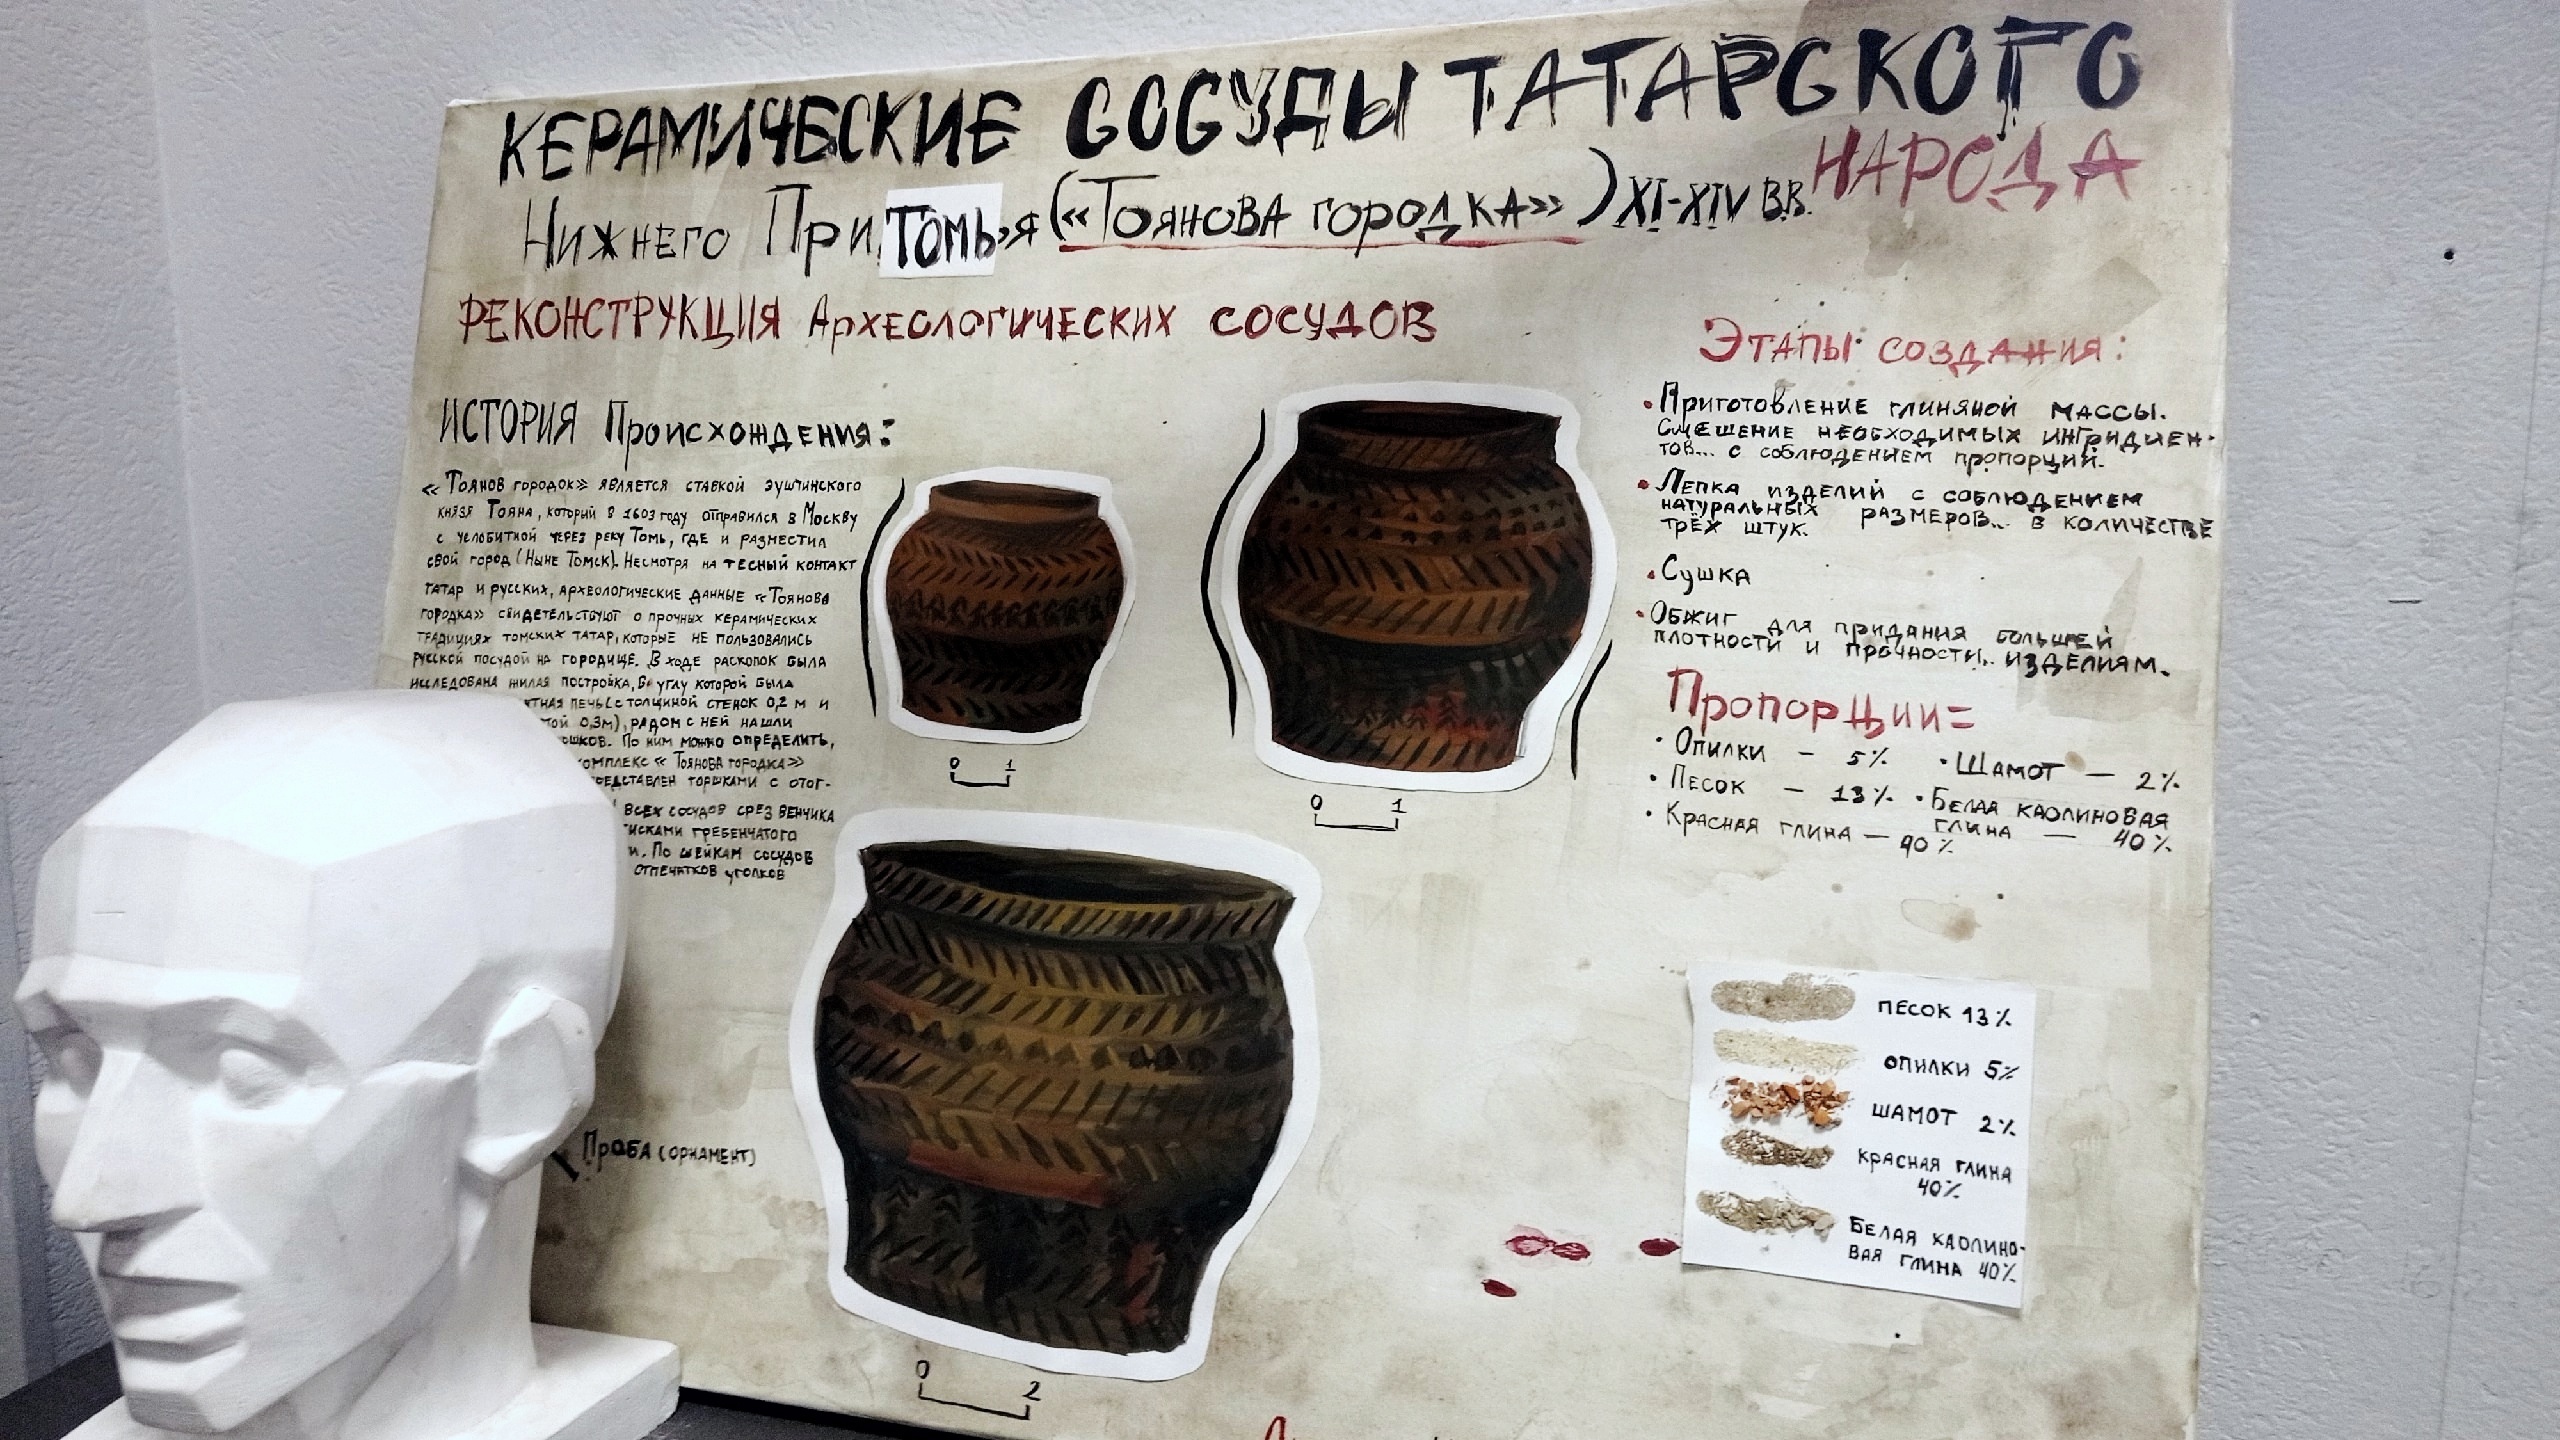 КЕРАМИЧЕСКИЕ СОСУДЫ ТАТАРСКОГО
НАРОДА
Нижнего ПриТОМЬ'я («Тоянова городка») XI-XIV В.В.
РЕКОНСТРУКЦИЯ Археологических сосудов
ИСТОРИЯ Происхождения:
«Тоянов городок» является ставкой эуштинского
князя Тояна, который в 1603 году отправился в Москву
с челобитной через реку Томь, где и разместил
свой город (Ныне Томск). Несмотря на тесный контакт
татар и русских, археологические данные «Тоянова
городка» свидетельствуют о прочных керамических
традициях томских татар, которые не пользовались
русской посудой на городище. В ходе раскопок была
исследована жилая постройка, в углу которой была
печь (с толщиной стенок 0,2 м и
0,3м), рядом с ней нашли
По ним можно определить,
«Тоянова городка»
горшками с отог-
всех сосудов срез венчика
гребенчатого
По шейкам сосудов
отпечатков уголков
0 1
0 1
0 2
Проба (орнамент)
Этапы создания:
• Приготовление глиняной массы.
Смешение необходимых ингридиен-
тов... с соблюдением пропорций.
• Лепка изделий с соблюдением
натуральных размеров... в количестве
трёх штук.
• Сушка
• Обжиг для придания большей
плотности и прочности... изделиям.
Пропорции=
• Опилки — 5% • Шамот — 2%
• Песок — 13% • Белая каолиновая
глина — 40%
• Красная глина — 40%
песок 13%
опилки 5%
шамот 2%
красная глина
40%
Белая каолино-
вая глина 40%